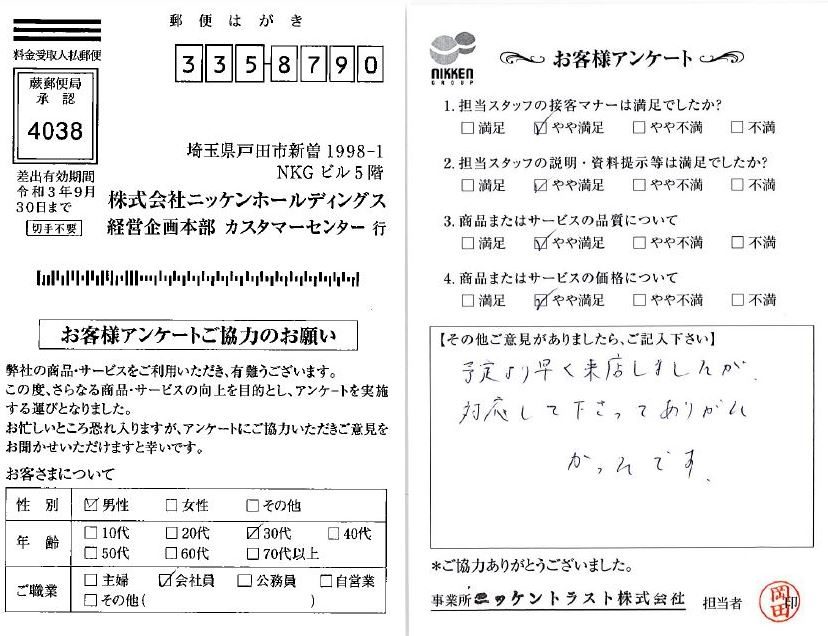 郵便はがき
料金受取人払郵便
蕨郵便局
承認
4038
差出有効期間
令和3年9月
30日まで
切手不要
335-8790
埼玉県戸田市新曽1998-1
NKGビル5階
株式会社ニッケンホールディングス
経営企画本部 カスタマーセンター 行
お客様アンケートご協力のお願い
弊社の商品・サービスをご利用いただき、有難うございます。
この度、さらなる商品・サービスの向上を目的とし、アンケートを実施
する運びとなりました。
お忙しいところ恐れ入りますが、アンケートにご協力いただきご意見を
お聞かせいただけますと幸いです。
お客さまについて
性 別 ☑男性 □女性 □その他
年 齢 □10代 □20代 ☑30代 □40代
□50代 □60代 □70代以上
ご職業 □主婦 ☑会社員 □公務員 □自営業
□その他( )
NIKKEN
GROUP
お客様アンケート
1.担当スタッフの接客マナーは満足でしたか?
□満足 ☑やや満足 □やや不満 □不満
2.担当スタッフの説明・資料提示等は満足でしたか?
□満足 ☑やや満足 □やや不満 □不満
3.商品またはサービスの品質について
□満足 ☑やや満足 □やや不満 □不満
4.商品またはサービスの価格について
□満足 ☑やや満足 □やや不満 □不満
【その他ご意見がありましたら、ご記入下さい】
予定より早く来店しましたが、
対応して下さってありがた
かったです。
*ご協力ありがとうございました。
事業所 ニッケントラスト株式会社 担当者 岡田 印